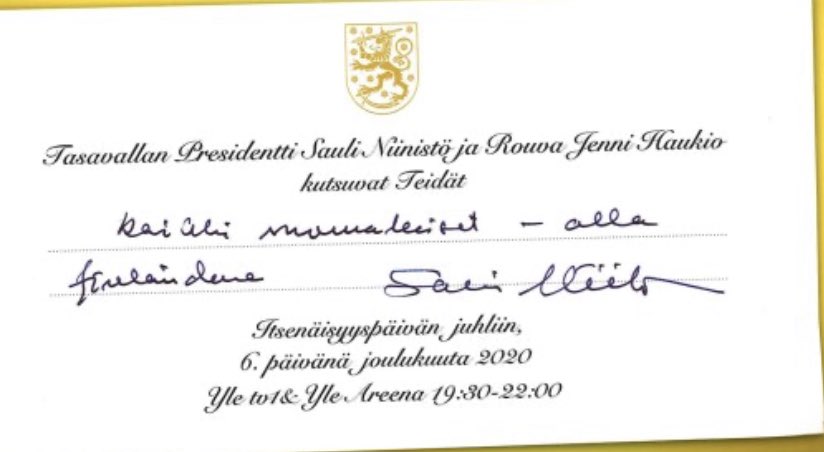 Tasavallan Presidentti Sauli Niinistö ja Rouva Jenni Haukio
kutsuvat Teidät
kaikki suomalaiset – alla
finländare Sauli Niinistö
Itsenäisyyspäivän juhliin,
6. päivänä joulukuuta 2020
Yle tv1 & Yle Areena 19:30-22:00